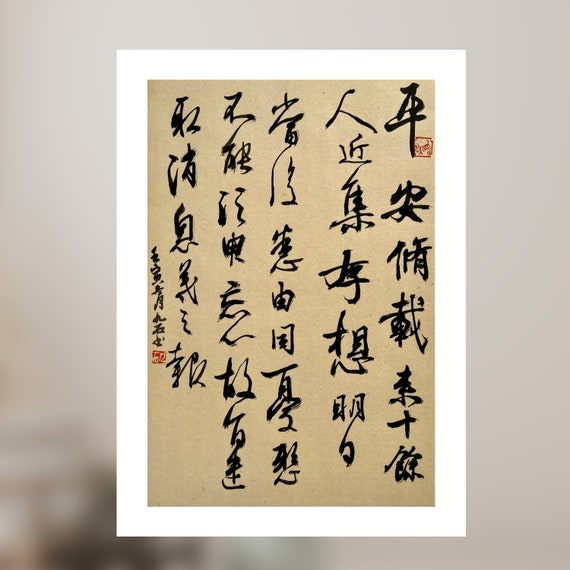 平安脩載来十餘
人近集存想明日
當復悉由同憂懸
不能須臾忘心故旨遣
取消息羲之報
壬寅月九石书